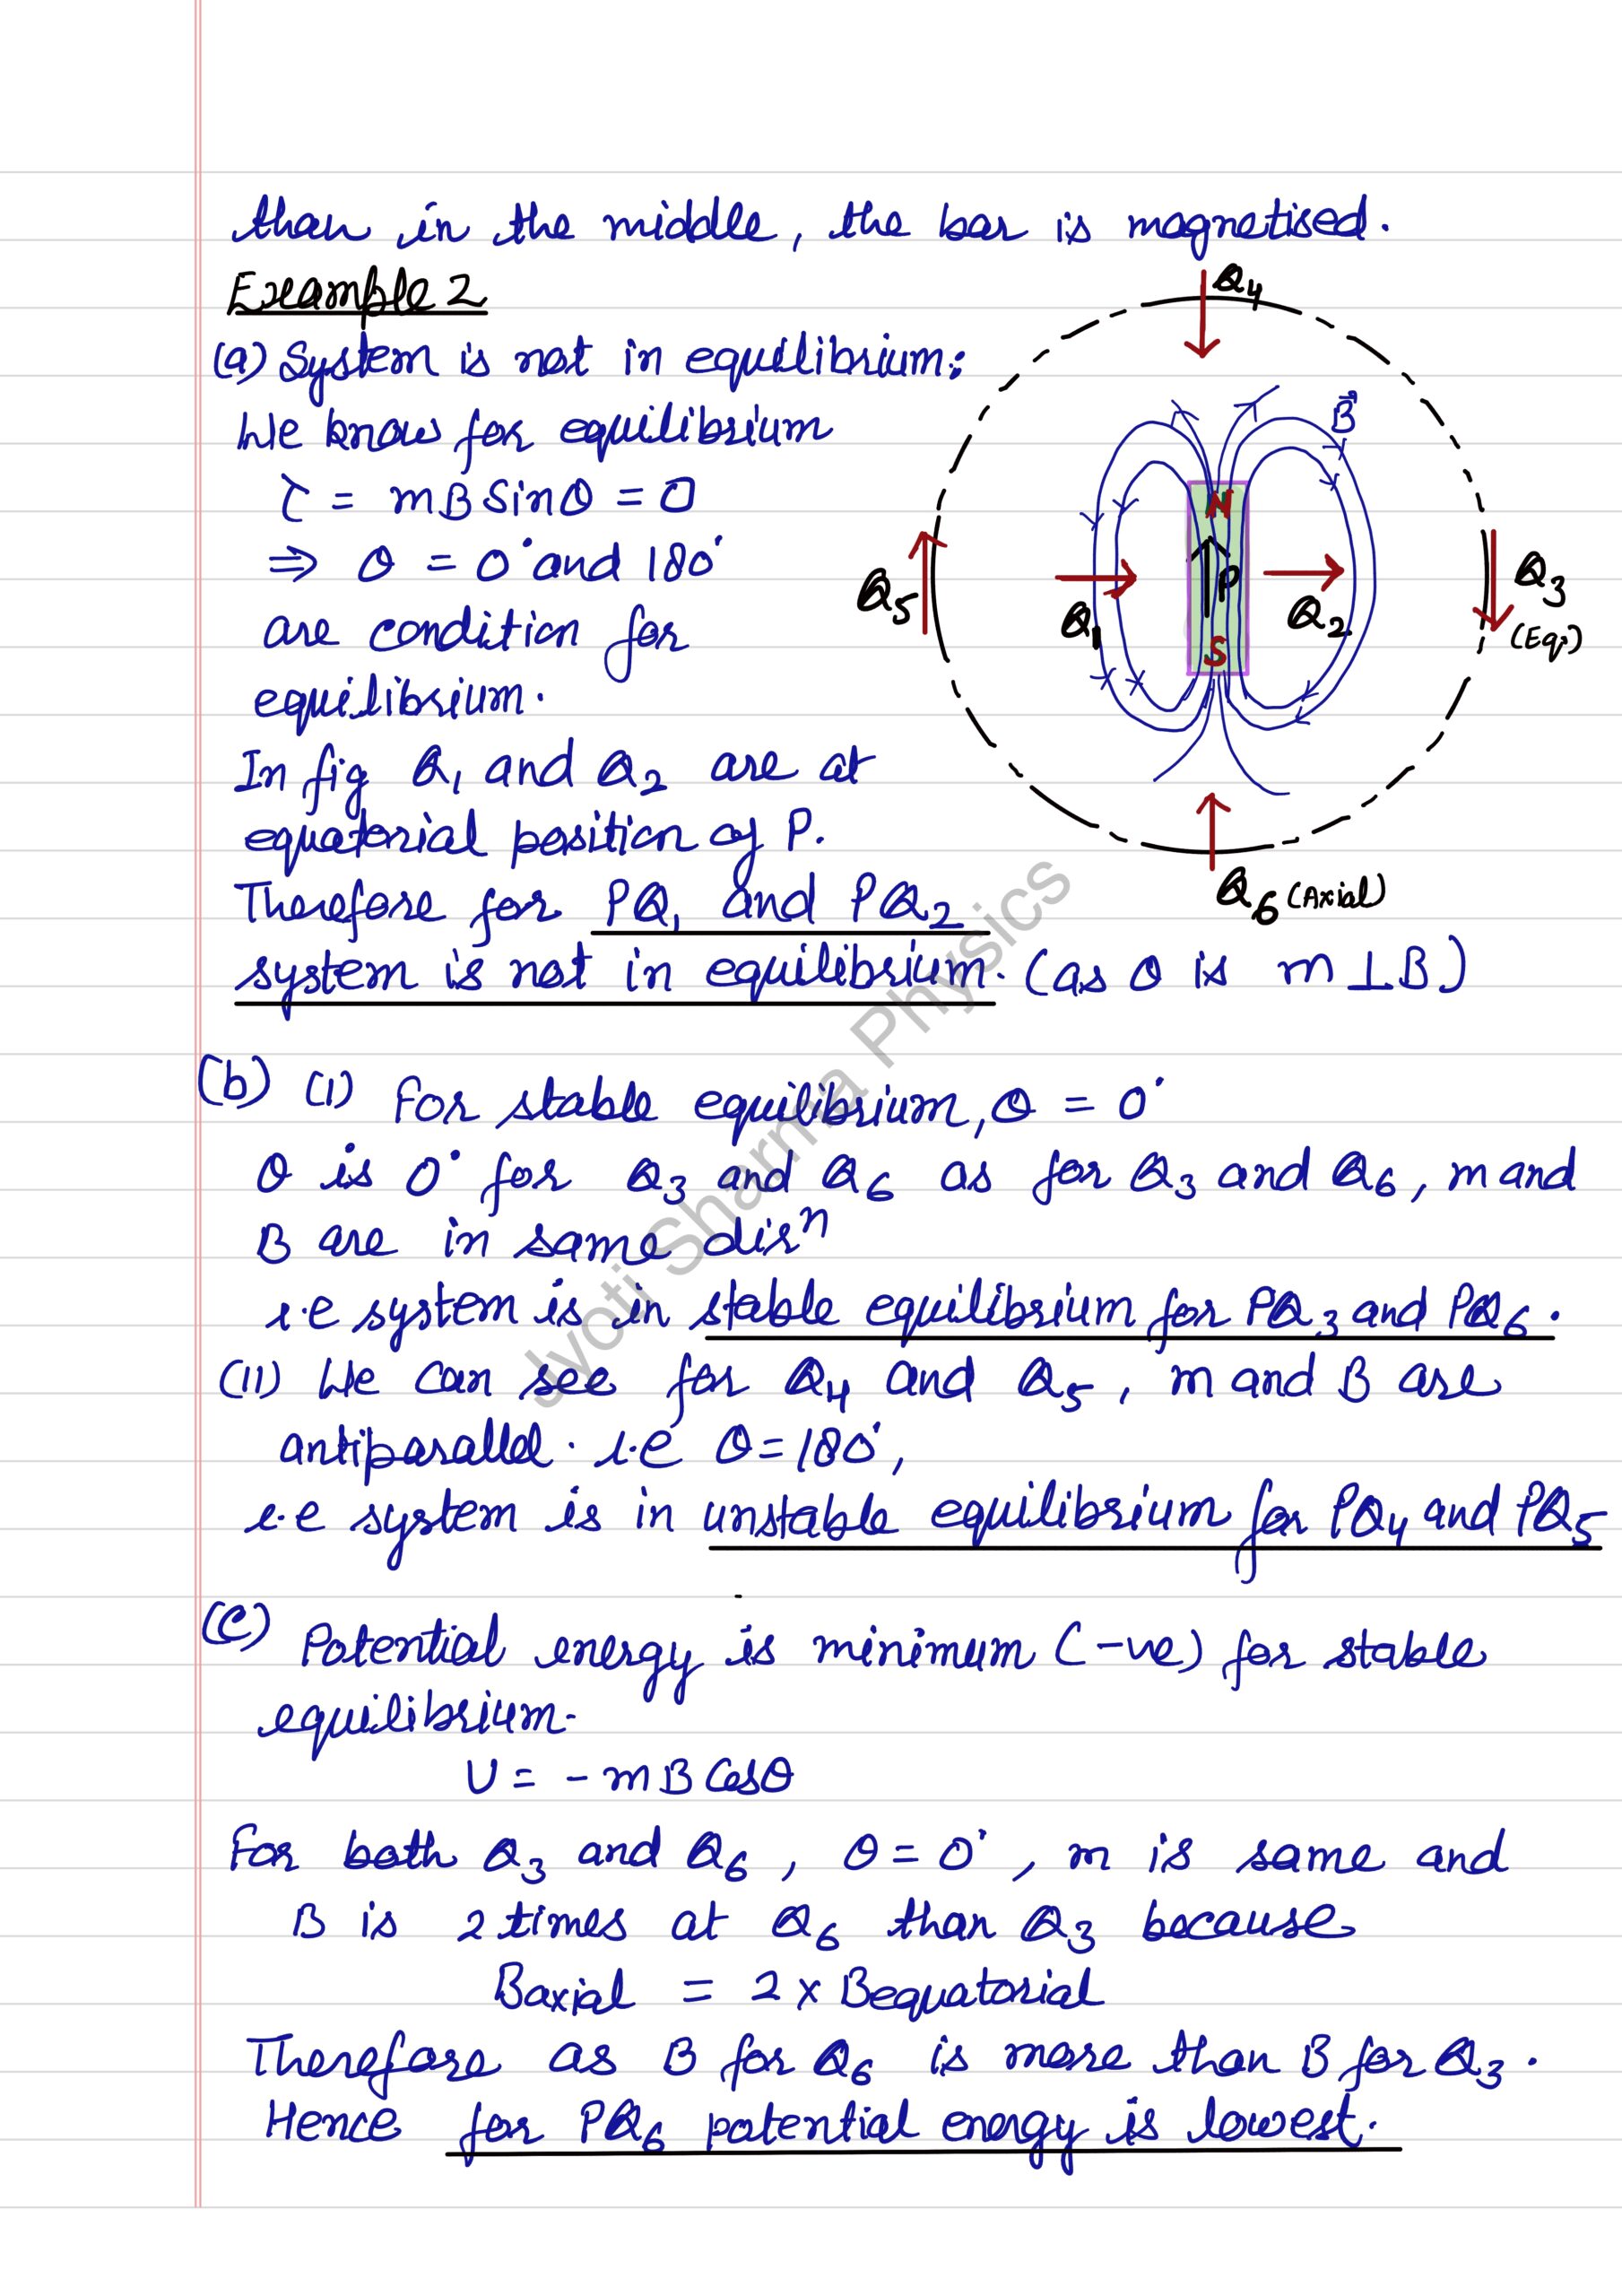 than in the middle, the bar is magnetised.
Example 2
(a) System is not in equilibrium:
We know for equilibrium
τ = mBSinθ = 0
⇒ θ = 0° and 180°
are condition for
equilibrium.
In fig Q1 and Q2 are at
equatorial position of P.
Therefore for PQ1 and PQ2
system is not in equilibrium. (as θ is m ⊥ B.)
Q4
B⃗
N
Q5
Q1
P
Q2
Q3
(Eq.)
S
Q6 (Axial)
(b) (i) For stable equilibrium, θ = 0°
θ is 0° for Q3 and Q6 as for Q3 and Q6, m and
B are in same dirⁿ
i.e system is in stable equilibrium for PQ3 and PQ6.
(ii) We can see for Q4 and Q5, m and B are
antiparallel. i.e θ = 180°,
i.e system is in unstable equilibrium for PQ4 and PQ5
(C) Potential energy is minimum (-ve) for stable
equilibrium.
U = - mB Cosθ
For both Q3 and Q6, θ = 0°, m is same and
B is 2 times at Q6 than Q3 because
Baxial = 2 x Bequatorial
Therefore as B for Q6 is more than B for Q3.
Hence for PQ6 potential energy is lowest.
Jyoti Sharma Physics